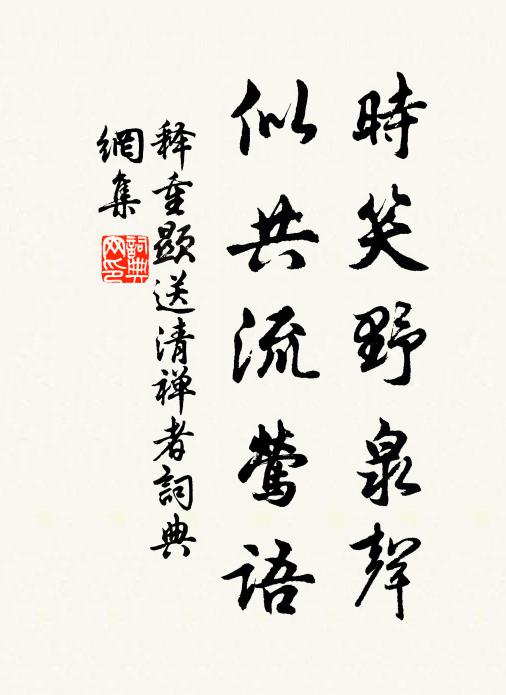 時笑野泉聲
似共流鶯語
释重顯送清禅者詞典
網集
詞典网印